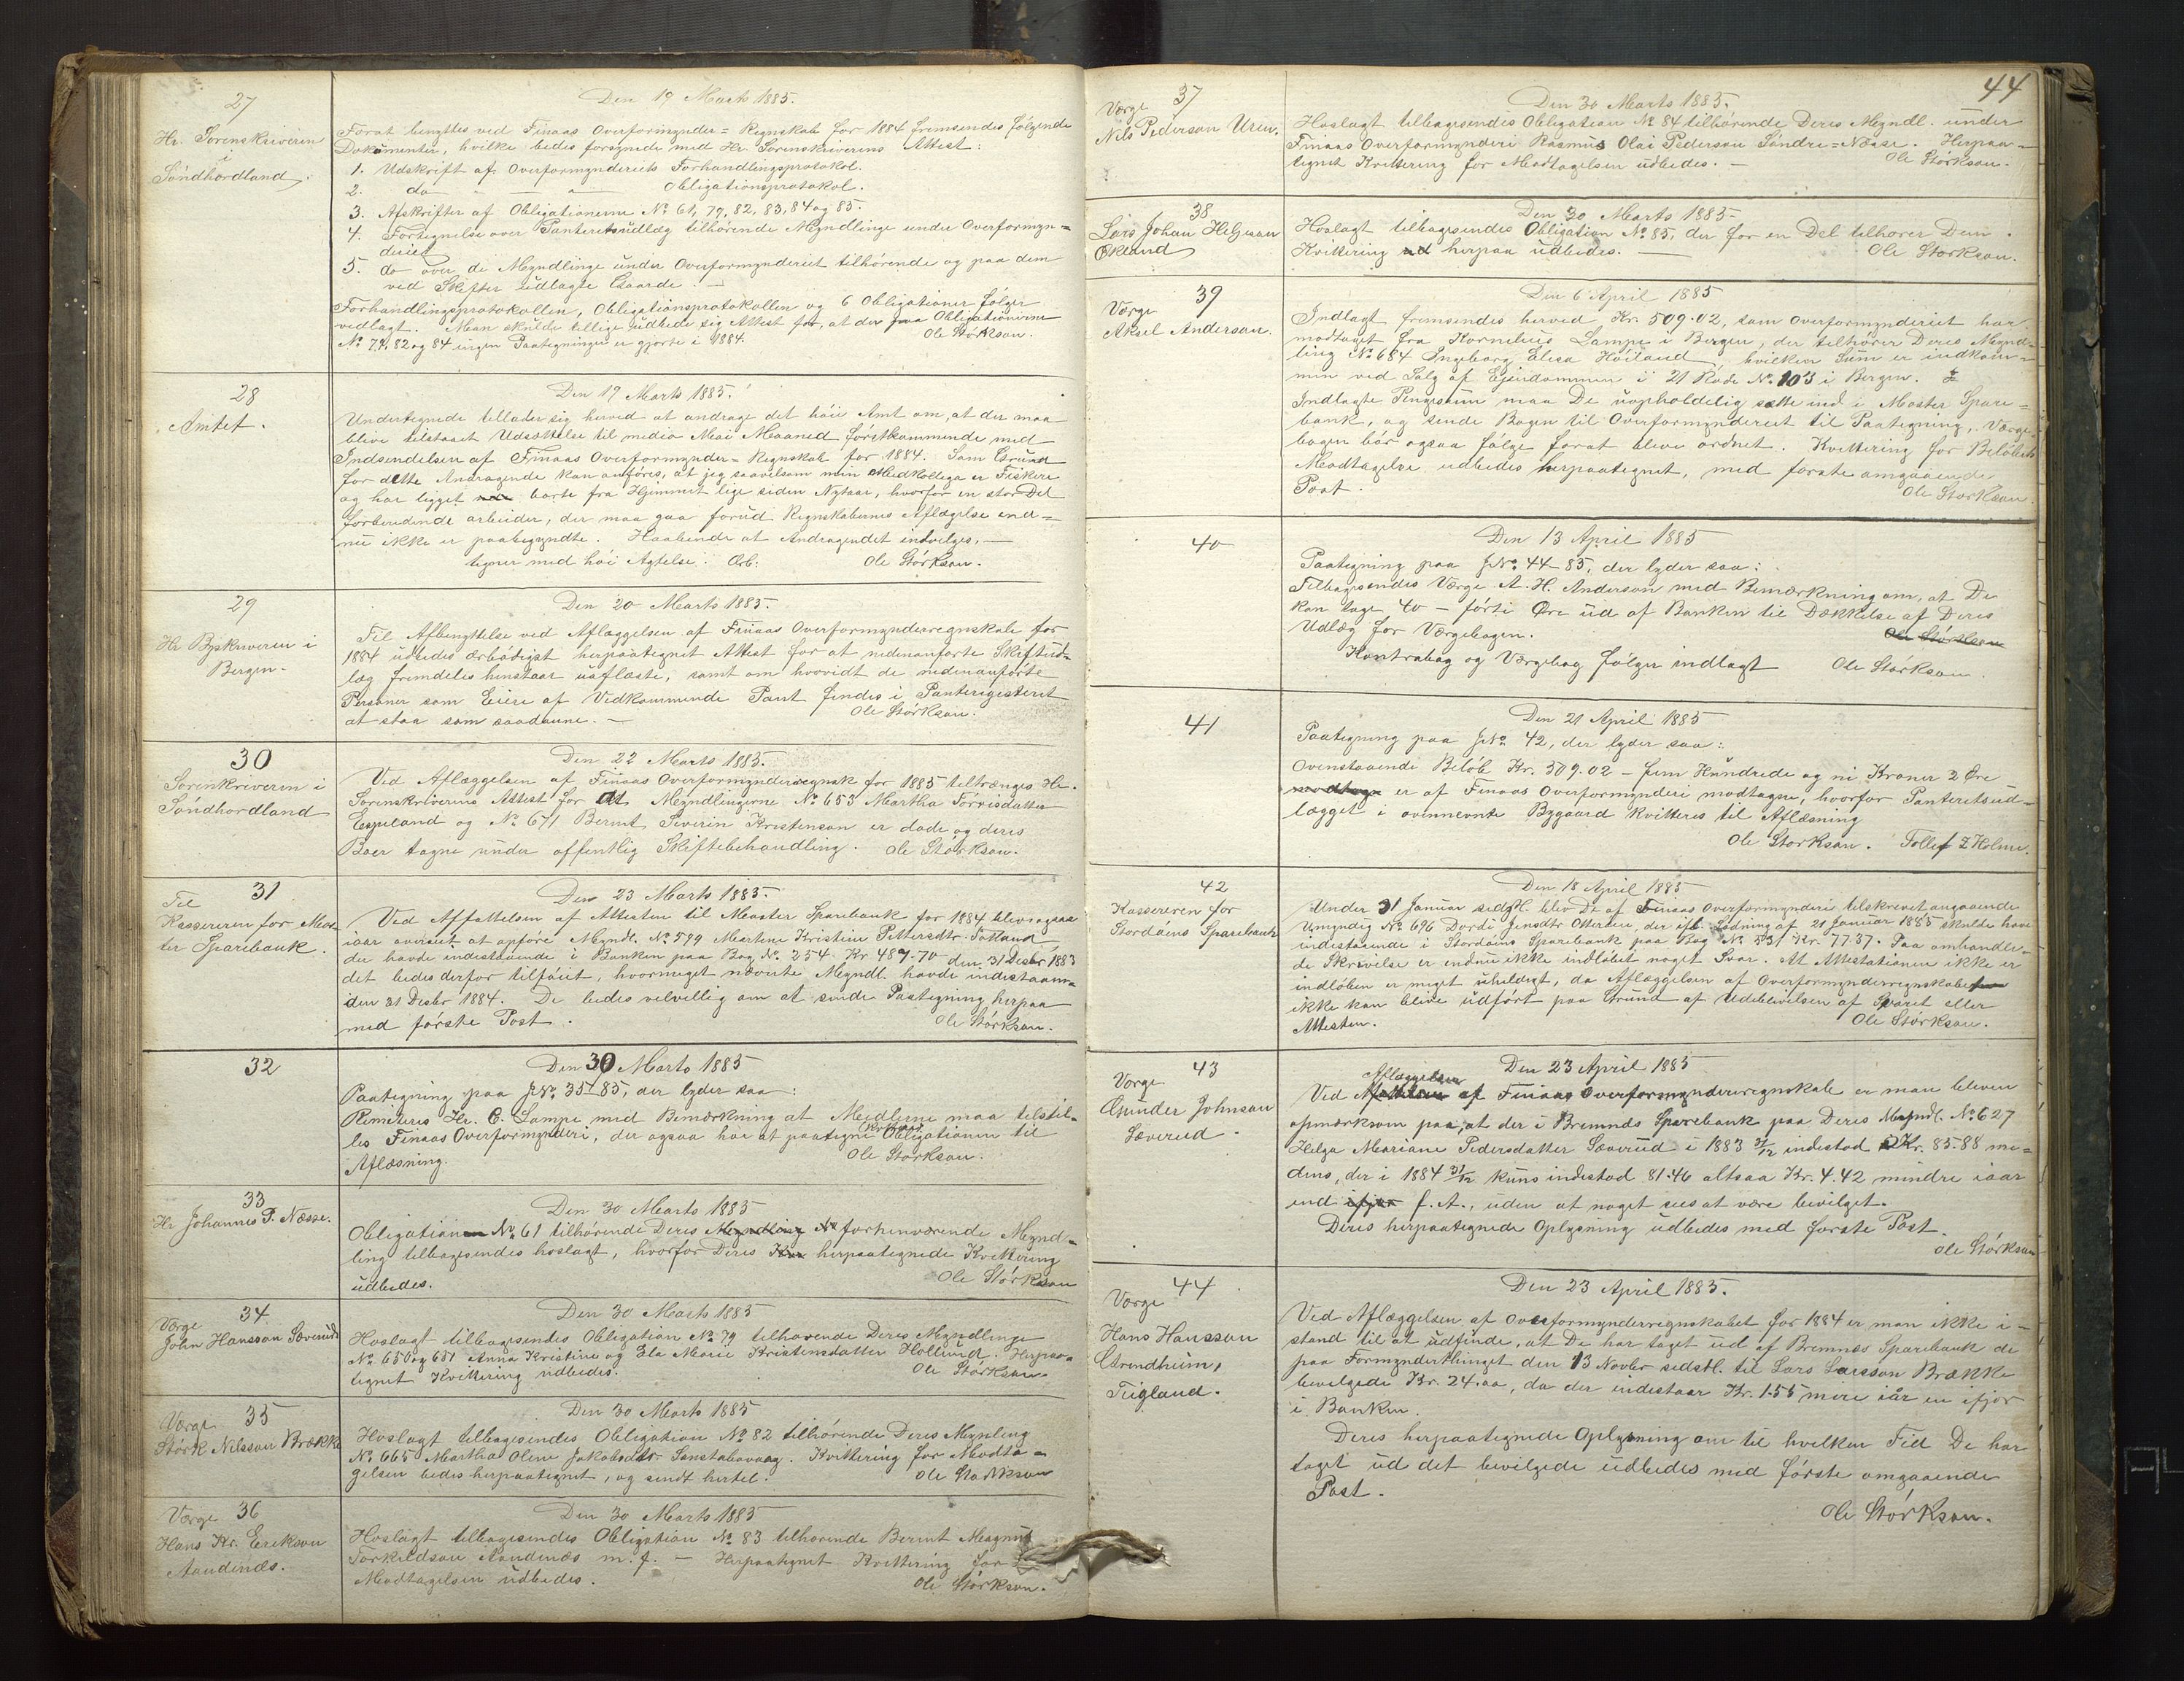 27
Hr. Sorenskriveren
i
Söndhordland.
Den 19 Marts 1885.
Forat benyttes ved Finaas Overformynder=Regnskab for 1884 fremsendes følgende
Dokumenter, hvilke bedes forsynede med Hr. Sorenskriverens Attest:
1. Udskrift af Overformynderiets Forhandlingsprotokol.
2. do — — Obligationsprotokol.
3. Afskrifter af Obligationerne No 61, 79, 82, 83, 84 og 85.
4. Fortegnelse over Panteretsudlæg tilhörende Myndlinge under Overformyn=
deriet
5. do over de Myndlinge under Overformynderiet tilhörende og paa dem
ved Skifter udlagte Gaarde. —
Forhandlingsprotokollen, Obligationsprotokollen og 6 Obligationer følger
vedlagt. Man skulde tillige udbede sig Attest for, at der paa Obligationerne
No 79, 82 og 84 ingen Paategninger er gjorte i 1884. Ole Störkson.
28
Amtet.
Den 19 Marts 1885.
Undertegnede tillader sig herved at andrage det höie Amt om, at der maa
blive tilstaaet Udsættelse til medio Mai Maaned förstkommende med
Indsendelsen af Finaas Overformynder=Regnskab for 1884. Som Grund
for dette Andragende kan anföres, at jeg saavelsom min Medkollega er Fiskere
og har ligget borte fra Hjemmet lige siden Nytaar, hvorfor en stor Del
forberedende arbeider, der maa gaa forud Regnskabernes Aflæggelse end=
nu ikke er paabegyndte. Haabende at Andragendet indvilges, —
tegner med höi Agtelse. Ærb: Ole Störkson.
29
Hr Byskriveren i
Bergen.
Den 20 Marts 1885.
Til Afbenyttelse ved Aflæggelsen af Finaas Overformynderregnskab for
1884 udbedes ærbödigst herpaategnet Attest for at nedenanførte Skifteud=
læg fremdeles henstaar uaflæste, samt om hvorvidt de nedenanförte
Personer som Eiere af Vedkommende Pant findes i Panteregisteret
at staa som saadanne. — Ole Störkson.
30
Sorenskriveren i
Söndhordland
Den 22 Marts 1885.
Ved Aflæggelsen af Finaas Overformynderregnsk for 1885 tiltrænges Hr.
Sorenskriverens Attest for At Myndlingerne No 653 Martha Torrisdatter
Espeland og No 671 Bernt Severin Kristenson er döde og deres
Boer tagne under offentlig Skiftebehandling. Ole Störkson.
31
Til
Kassereren for Mos=
ter Sparebank.
Den 23 Marts 1885.
Ved Affattelsen af Attesten til Moster Sparebank for 1884 blev ogsaa
iaar overseet at opföre Myndl. No 599 Martine Kristine Pettersdtr. Totland
der havde indestaaende i Banken paa Bog No 254 Kr 489.70 den 31 Desbr 1883
det bedes derfor tilföiet, hvormeget nævnte Myndl. havde indestaaen=
den 31 Desbr 1884. De bedes velvillig om at sende Paategning herpaa
med förste Post. Ole Störkson.
32
Den 30 Marts 1885
Paategning paa JNo. 35/85, der lyder saa:
Remiteres Hr. C. Lampe med Bemærkning at Midlerne maa tilstil=
les Finaas Overformynderi, der ogsaa har at paategne Obligationen til
Aflæsning. Ole Störkson.
33
Hr Johannes P. Næsse.
Den 30 Marts 1885
Obligation No 61 tilhörende Deres Myndling forhenværende Mynd=
ling tilbagesendes hoslagt, hvorfor Deres herpaategnede Kvittering
udbedes. Ole Störkson
34
Værge
John Hansson Sæverud
Den 30 Marts 1885
Hoslagt tilbagesendes Obligation No 79 tilhørende Deres Myndlinge
No 650 og 651 Anna Kristine og Ela Marie Kristensdatter Hollund. Herpaa=
tegnet Kvittering udbedes. Ole Störkson.
35
Værge
Störk Nilsson Brække
Den 30 Marts 1885
Hoslagt tilbagesendes Obligation No 82 tilhörende Deres Myndling
No 665 Martha Oline Jakobsdtr Innstabøvaag. Kvittering for Modta=
gelsen bedes herpaategnet, og sendt hertil. Ole Störkson
36
Værge
Hans Kr. Erikson
Aandenæs.
Den 30 Marts 1885
Hoslagt tilbagesendes Obligation No 83 tilhørende Bernt Magnus
Torkildson Aandenæs m. f. — Herpaategnet Kvittering for
Modtagelsen udbedes. Ole Störkson.
44
37
Værge
Nils Pederson Uren.
Den 30 Marts 1885.
Hoslagt tilbagesendes Obligation No 84 tilhörende Deres Myndl. under
Finaas Overformynderi Rasmus Olai Pederson Söndre=Næsse. Herpaa=
tegnet Kvittering for Modtagelsen udbedes. — Ole Störkson.
38
Lars Johan Helgeson
Økland
Den 30 Marts 1885.
Hoslagt tilbagesendes Obligation No. 85, der for en Del tilhører Dem.
Kvittering herpaa udbedes. — Ole Störkson.
39
Værge
Aksel Anderson.
Den 6 April 1885
Indlagt fremsendes herved Kr. 509.02, som Overformynderiet har
modtaget fra Kornelius Lampe i Bergen, der tilhører Deres Mynd=
ling No 684 Ingeborg Elisa Höiland, hvilken Sum er indkom=
men ved Salg af Eiendommen i 21 Rode No. 103 i Bergen.
Indlagte Pengesum maa De uopholdelig sætte ind i Moster Spare=
bank, og sende Bogen til Overformynderiet til Paategning. Værge=
bogen bör ogsaa følge forat blive ordnet. Kvittering for Belöbets
Modtagelse udbedes herpaategnet, med første omgaaende
Post. Ole Störkson.
40
Den 13 April 1885
Paategning paa JNo. 44-85, der lyder saa:
Tilbagesendes Værge A. H. Anderson med Bemærkning om, at De
kan tage 40 — förti Øre ud af Banken til Dækkelse af Deres
Udlæg for Værgebogen. Ole Störkson
Kontrabog og Værgebog følger indlagt Ole Störkson.
41
Den 21 April 1885
Paategning paa JNo 42, der lyder saa:
Ovenstaaende Belöb Kr. 509.02 — fem Hundrede og ni Kroner 2 Øre
modtaget er af Finaas Overformynderi modtagne, hvorfor Panteretsud=
lægget i ovennevnte Bygaard kvitteres til Aflæsning
Ole Störkson. Tollef T Holme.
42
Kassereren for
Stordöens Sparebank
Den 18 April 1885
Under 31 Januar sidstl. blev Dt af Finaas Overformynderi tilskrevet angaaende
Umyndig No 696 Dordi Jensdtr Otterøen, der ifl. Lodning af 21 Januar 1885 skulde have
indestaaende i Stordöens Sparebank paa Bog No 531 Kr. 77.37. Paa omhandle=
de Skrivelse er endnu ikke indlöbet noget Svar. At Attestationen ikke er
indlöben er meget uheldigt, da Aflæggelsen af Overformynderregnskabet
ikke kan blive udført paa Grund af Udeblivelsen af Svaret eller
Attesten. Ole Störkson.
43
Værge
Gunder Johnson
Sæverud.
Den 23 April 1885
Aflæggelsen
Ved af Finaas Overformynderregnskab er man bleven
opmærksom paa, at der i Bremnes Sparebank paa Deres Myndl. No 627
Helga Mariane Pedersdatter Sæverud i 1883 31/12 indestod Kr. 85.88 me=
dens, der i 1884 31/12 kuns indestod 81.46 altsaa Kr. 4.42 mindre iaar
end ifjor f. A., uden at noget sees at være bevilget.
Deres herpaategnede Oplysning udbedes med første Post.
Ole Störkson
44
Værge
Hans Hansson
Strendheim,
Tegland.
Den 23 April 1885.
Ved Aflæggelsen af Overformynderregnskabet for 1884 er man ikke i=
stand til at udfinde, at De har taget ud af Bremnes Sparebank de
paa Formynderthinget den 13 Novbr sidstl. til Lars Larsson Brække
bevilgede Kr. 24.00, da der indestaar Kr. 1.55 mere iår en ifjor
i Banken.
Deres herpaategnede Oplysning om til hvilken Tid De har
taget ud det bevilgede udbedes med første omgaaende
Post.
Ole Störkson.